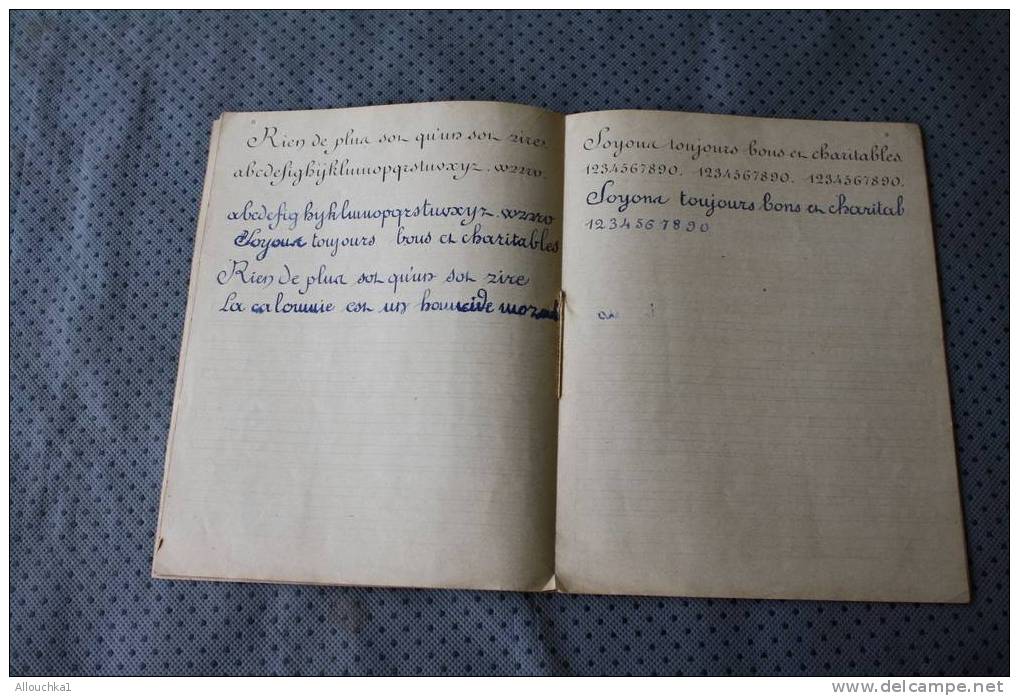 Rien de plus sot qu'un sot rire
abcdefighijklmnopqrstuvxyz.
abcdefighyklmnopqrstuvxyz.
Soyons toujours bons et charitables
Rien de plus sot qu'un sot rire
La calomnie est un homicide moral
Soyons toujours bons et charitables
1234567890. 1234567890. 1234567890.
Soyons toujours bons et charitab
1234567890
Allouchka1
www.delcampe.net